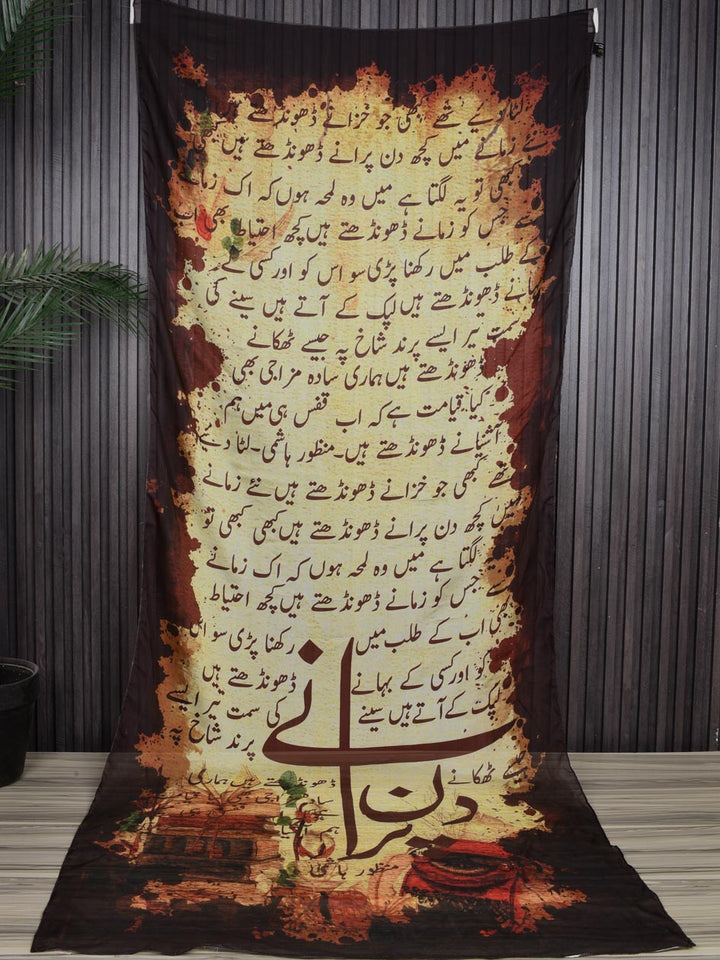 لٹا دیے تھے کبھی جو خزانے ڈھونڈھتے
نئے زمانے میں کچھ دن پرانے ڈھونڈھتے ہیں
کبھی تو یہ لگتا ہے میں وہ لمحہ ہوں کہ اک زمانے
سے جس کو زمانے ڈھونڈھتے ہیں کچھ احتیاط بھی اب
کے طلب میں رکھنا پڑی سو اس کو اور کسی کے
بہانے ڈھونڈھتے ہیں لپک کے آتے ہیں سینے کی
سمت تیر ایسے پرند شاخ پہ جیسے ٹھکانے
ڈھونڈھتے ہیں ہماری سادہ مزاجی بھی
کیا قیامت ہے کہ اب قفس ہی میں ہم
آشیانے ڈھونڈھتے ہیں۔ منظور ہاشمی۔ لٹا دیے
تھے کبھی جو خزانے ڈھونڈھتے ہیں نئے زمانے
میں کچھ دن پرانے ڈھونڈھتے ہیں کبھی کبھی تو
لگتا ہے میں وہ لمحہ ہوں کہ اک زمانے
سے جس کو زمانے ڈھونڈھتے ہیں کچھ احتیاط
بھی اب کے طلب میں رکھنا پڑی سو اس
کو اور کسی کے بہانے ڈھونڈھتے ہیں
لپک کے آتے ہیں سینے کی سمت تیر ایسے
پرند شاخ پہ
جیسے ٹھکانے ڈھونڈھتے ہیں ہماری
منظور ہاشمی
دن پرانے